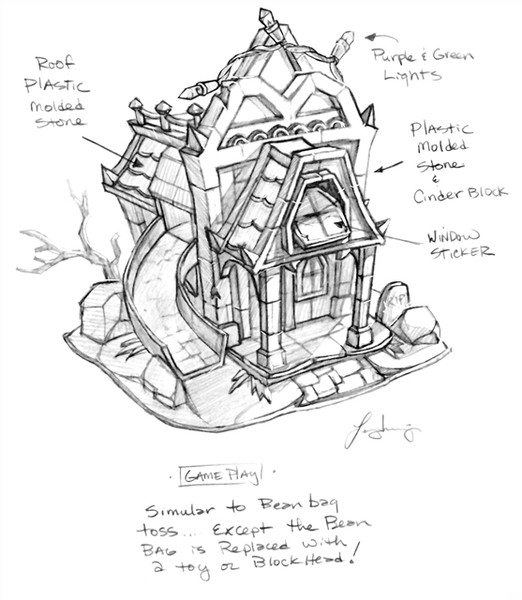 Roof
Plastic
Molded
Stone
Purple & Green
Lights
Plastic
Molded
Stone
&
Cinder Block
Window
Sticker
RIP
· GAME PLAY! ·
Simular to Bean bag
toss... Except the Bean
Bag is Replaced with
a toy or Block Head!